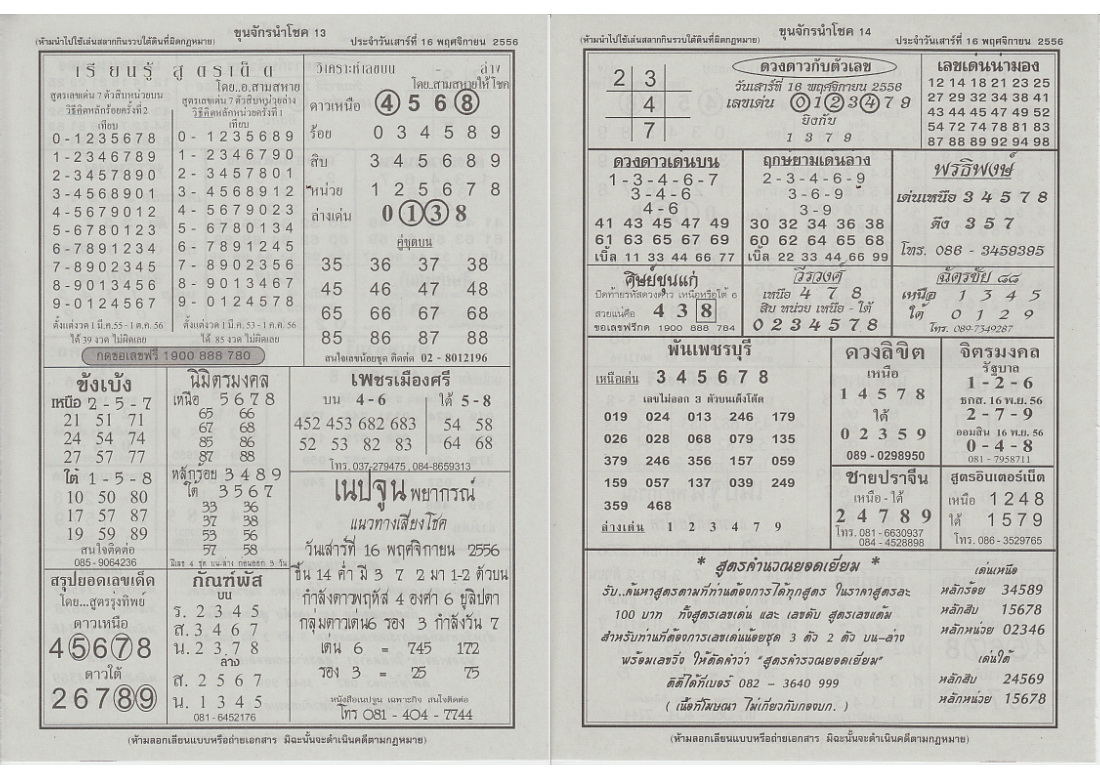 ขุนจักรนำโชค 13
(ห้ามนำไปใช้เล่นสลากกินรวบใต้ดินที่ผิดกฎหมาย) ประจำวันเสาร์ที่ 16 พฤศจิกายน 2556
เรียนรู้ สูตรเด็ด
โดย..อ.สามสหาย
สูตรเลขเด่น 7 ตัวสิบหน่วยบน
วิธีคิดหลักร้อยครั้งที่ 2
เทียบ
0 - 1 2 3 5 6 7 8
1 - 2 3 4 6 7 8 9
2 - 3 4 5 7 8 9 0
3 - 4 5 6 8 9 0 1
4 - 5 6 7 9 0 1 2
5 - 6 7 8 0 1 2 3
6 - 7 8 9 1 2 3 4
7 - 8 9 0 2 3 4 5
8 - 9 0 1 3 4 5 6
9 - 0 1 2 4 5 6 7
ตั้งแต่งวด 1 มี.ค.55 - 1 ต.ค. 56
ได้ 39 งวด ไม่ผิดเลย
สูตรเลขเด่น 7 ตัวสิบหน่วยล่าง
วิธีคิดหลักหน่วยครั้งที่ 1
เทียบ
0 - 1 2 3 5 6 8 9
1 - 2 3 4 6 7 9 0
2 - 3 4 5 7 8 0 1
3 - 4 5 6 8 9 1 2
4 - 5 6 7 9 0 2 3
5 - 6 7 8 0 1 3 4
6 - 7 8 9 1 2 4 5
7 - 8 9 0 2 3 5 6
8 - 9 0 1 3 4 6 7
9 - 0 1 2 4 5 7 8
ตั้งแต่งวด 1 มี.ค. 53 - 1 ต.ค. 56
ได้ 85 งวด ไม่ผิดเลย
กดขอเลขฟรี 1900 888 780
วิเคราะห์เลขบน - ล่าง
โดย..สามสหายให้โชค
ดาวเหนือ 4 5 6 8
ร้อย 0 3 4 5 8 9
สิบ 3 4 5 6 8 9
หน่วย 1 2 5 6 7 8
ล่างเด่น 0 1 3 8
คู่ชุดบน
35 36 37 38
45 46 47 48
65 66 67 68
85 86 87 88
สนใจเลขน้อยชุด ติดต่อ 02 - 8012196
ชั่งเบ้ง
เหนือ 2 - 5 - 7
21 51 71
24 54 74
27 57 77
ใต้ 1 - 5 - 8
10 50 80
17 57 87
19 59 89
สนใจติดต่อ
085 - 9064236
นิมิตรมงคล
เหนือ 5 6 7 8
65 66
67 68
85 86
87 88
หลักร้อย 3 4 8 9
ใต้ 3 5 6 7
33 36
37 38
53 56
57 58
เพชรเมืองศรี
บน 4 - 6 ใต้ 5 - 8
452 453 682 683 54 58
52 53 82 83 64 68
โทร. 037-279475 , 084-8659313
เนปจูน พยากรณ์
แนวทางเสี่ยงโชค
วันเสาร์ที่ 16 พฤศจิกายน 2556
ขึ้น 14 ค่ำ มี 3 7 2 มา 1-2 ตัวบน
กำลังดาวพฤหัส 4 องศา 6 ฃูลิปดา
กลุ่มดาวเด่น6 รอง 3 กำลังวัน 7
เด่น 6 = 745 172
รอง 3 = 25 75
หนังสือเนปจูน เฉพาะกิจ สนใจติดต่อ
โทร 081 - 404 - 7744
สรุปยอดเลขเด็ด
โดย...สูตรรุ่งทิพย์
ดาวเหนือ
4 5 6 7 8
ดาวใต้
2 6 7 8 9
กัณฑ์พัส
บน
ร. 2 3 4 5
ส. 3 4 6 7
น. 2 3 7 8
ล่าง
ส. 2 5 6 7
น. 1 3 4 5
081 - 6452176
(ห้ามลอกเลียนแบบหรือถ่ายเอกสาร มิฉะนั้นจะดำเนินคดีตามกฎหมาย)
ขุนจักรนำโชค 14
(ห้ามนำไปใช้เล่นสลากกินรวบใต้ดินที่ผิดกฎหมาย) ประจำวันเสาร์ที่ 16 พฤศจิกายน 2556
2 3
4
7
ดวงดาวกับตัวเลข
วันเสาร์ที่ 16 พฤศจิกายน 2556
เลขเด่น 0 1 2 3 4 7 9
ยิงกับ
1 3 7 9
เลขเด่นน่ามอง
12 14 18 21 23 25
27 29 32 34 38 41
43 44 45 47 49 52
54 72 74 78 81 83
87 88 89 92 94 98
ดวงดาวเด่นบน
1 - 3 - 4 - 6 - 7
3 - 4 - 6
4 - 6
41 43 45 47 49
61 63 65 67 69
เบิ้ล 11 33 44 66 77
ฤกษ์ยามเด่นล่าง
2 - 3 - 4 - 6 - 9
3 - 6 - 9
3 - 9
30 32 34 36 38
60 62 64 65 68
เบิ้ล 22 33 44 66 99
พรธิพงษ์
เด่นเหนือ 3 4 5 7 8
ดึง 3 5 7
โทร. 086 - 3459395
ศิษย์ขุนแก่
ปิดท้ายรหัสดวงดาว เหนือหรือใต้ 6
สวยแน่คือ 4 3 8
ขอเลขฟรีกด 1900 888 784
วีรวงศ์
เหนือ 4 7 8
สิบ หน่วย เหนือ - ใต้
0 2 3 4 5 7 8
ฉัตรชัย ๘๘
เหนือ 1 3 4 5
ใต้ 0 1 2 9
โทร. 089-7349287
พันเพชรบุรี
เหนือเด่น 3 4 5 6 7 8
เลขไม่ออก 3 ตัวบนเต็งโต๊ด
019 024 013 246 179
026 028 068 079 135
379 246 356 157 059
159 057 137 039 249
359 468
ล่างเด่น 1 2 3 4 7 9
ดวงลิขิต
เหนือ
1 4 5 7 8
ใต้
0 2 3 5 9
089 - 0298950
จิตรมงคล
รัฐบาล
1 - 2 - 6
ธกส. 16 พ.ย. 56
2 - 7 - 9
ออมสิน 16 พ.ย. 56
0 - 4 - 8
081 - 7958711
ชายปราจีน
เหนือ - ใต้
2 4 7 8 9
โทร. 081 - 6630937
084 - 4528898
สูตรอินเตอร์เน็ต
เหนือ 1 2 4 8
ใต้ 1 5 7 9
โทร. 086 - 3529765
* สูตรคำนวณยอดเยี่ยม *
รับ..ค้นหาสูตรตามที่ท่านต้องการได้ทุกสูตร ในราคาสูตรละ
100 บาท ทั้งสูตรเลขเด่น และ เลขดับ สูตรเลขแต้ม
สำหรับท่านที่ต้องการเลขเด่นน้อยชุด 3 ตัว 2 ตัว บน-ล่าง
พร้อมเลขวิ่ง ให้ตัดคำว่า "สูตรคำรวณยอดเยี่ยม"
ติดีได้ที่เบอร์ 082 - 3640 999
( เนื้อที่โฆษณา ไม่เกี่ยวกับกองบก. )
เด่นเหนือ
หลักร้อย 34589
หลักสิบ 15678
หลักหน่วย 02346
เด่นใต้
หลักสิบ 24569
หลักหน่วย 15678
(ห้ามลอกเลียนแบบหรือถ่ายเอกสาร มิฉะนั้นจะดำเนินคดีตามกฎหมาย)